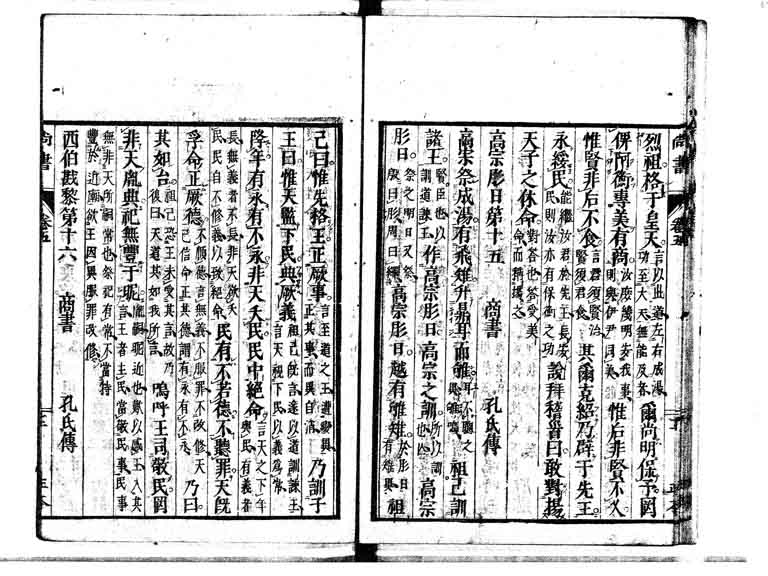 尚書 卷五
烈祖格于皇天言以此道左右成湯功至大天無能及者爾尚明保予罔
俾阿衡專美有商汝庶幾明安我事則與伊尹同美惟后非賢不乂
惟賢非后不食言君須賢治賢須君食其爾克紹乃辟于先王
永綏民能繼汝君於先王長安民則汝亦有保衡之功說拜稽首曰敢對揚
天子之休命對答也答受美命而稱揚之
高宗肜日第十五 商書 孔氏傳
高宗祭成湯有飛雉升鼎耳而雊耳不聽之異雊鳴祖己訓
諸王賢臣也以訓道諫王作高宗肜日高宗之訓所以訓也亡高宗
肜日祭之明日又祭殷曰肜周曰繹高宗肜日越有雊雉於肜日有雉異祖
己曰惟先格王正厥事言至道之王遭變異正其事而異自消乃訓于
王曰惟天監下民典厥義祖己既言遂以道訓諫王言天視下民以義為常
降年有永有不永非天夭民民中絕命言天之下年與民有義者
長無義者不長非天欲夭民民自不修義以致絕命民有不若德不聽罪天既
孚命正厥德不順德言無義不服罪不改修天已信命正其德謂有永有不永乃曰
其如台祖己恐王未受其言故乃復曰天道其如我所言嗚呼王司敬民罔
非天胤典祀無豐于昵胤嗣昵近也歎以感王入其言王者主民當敬民事民事
無非天所嗣常也祭祀有常不當特豐於近廟欲王因異服罪改修
西伯戡黎第十六 商書 孔氏傳
尚書 卷五